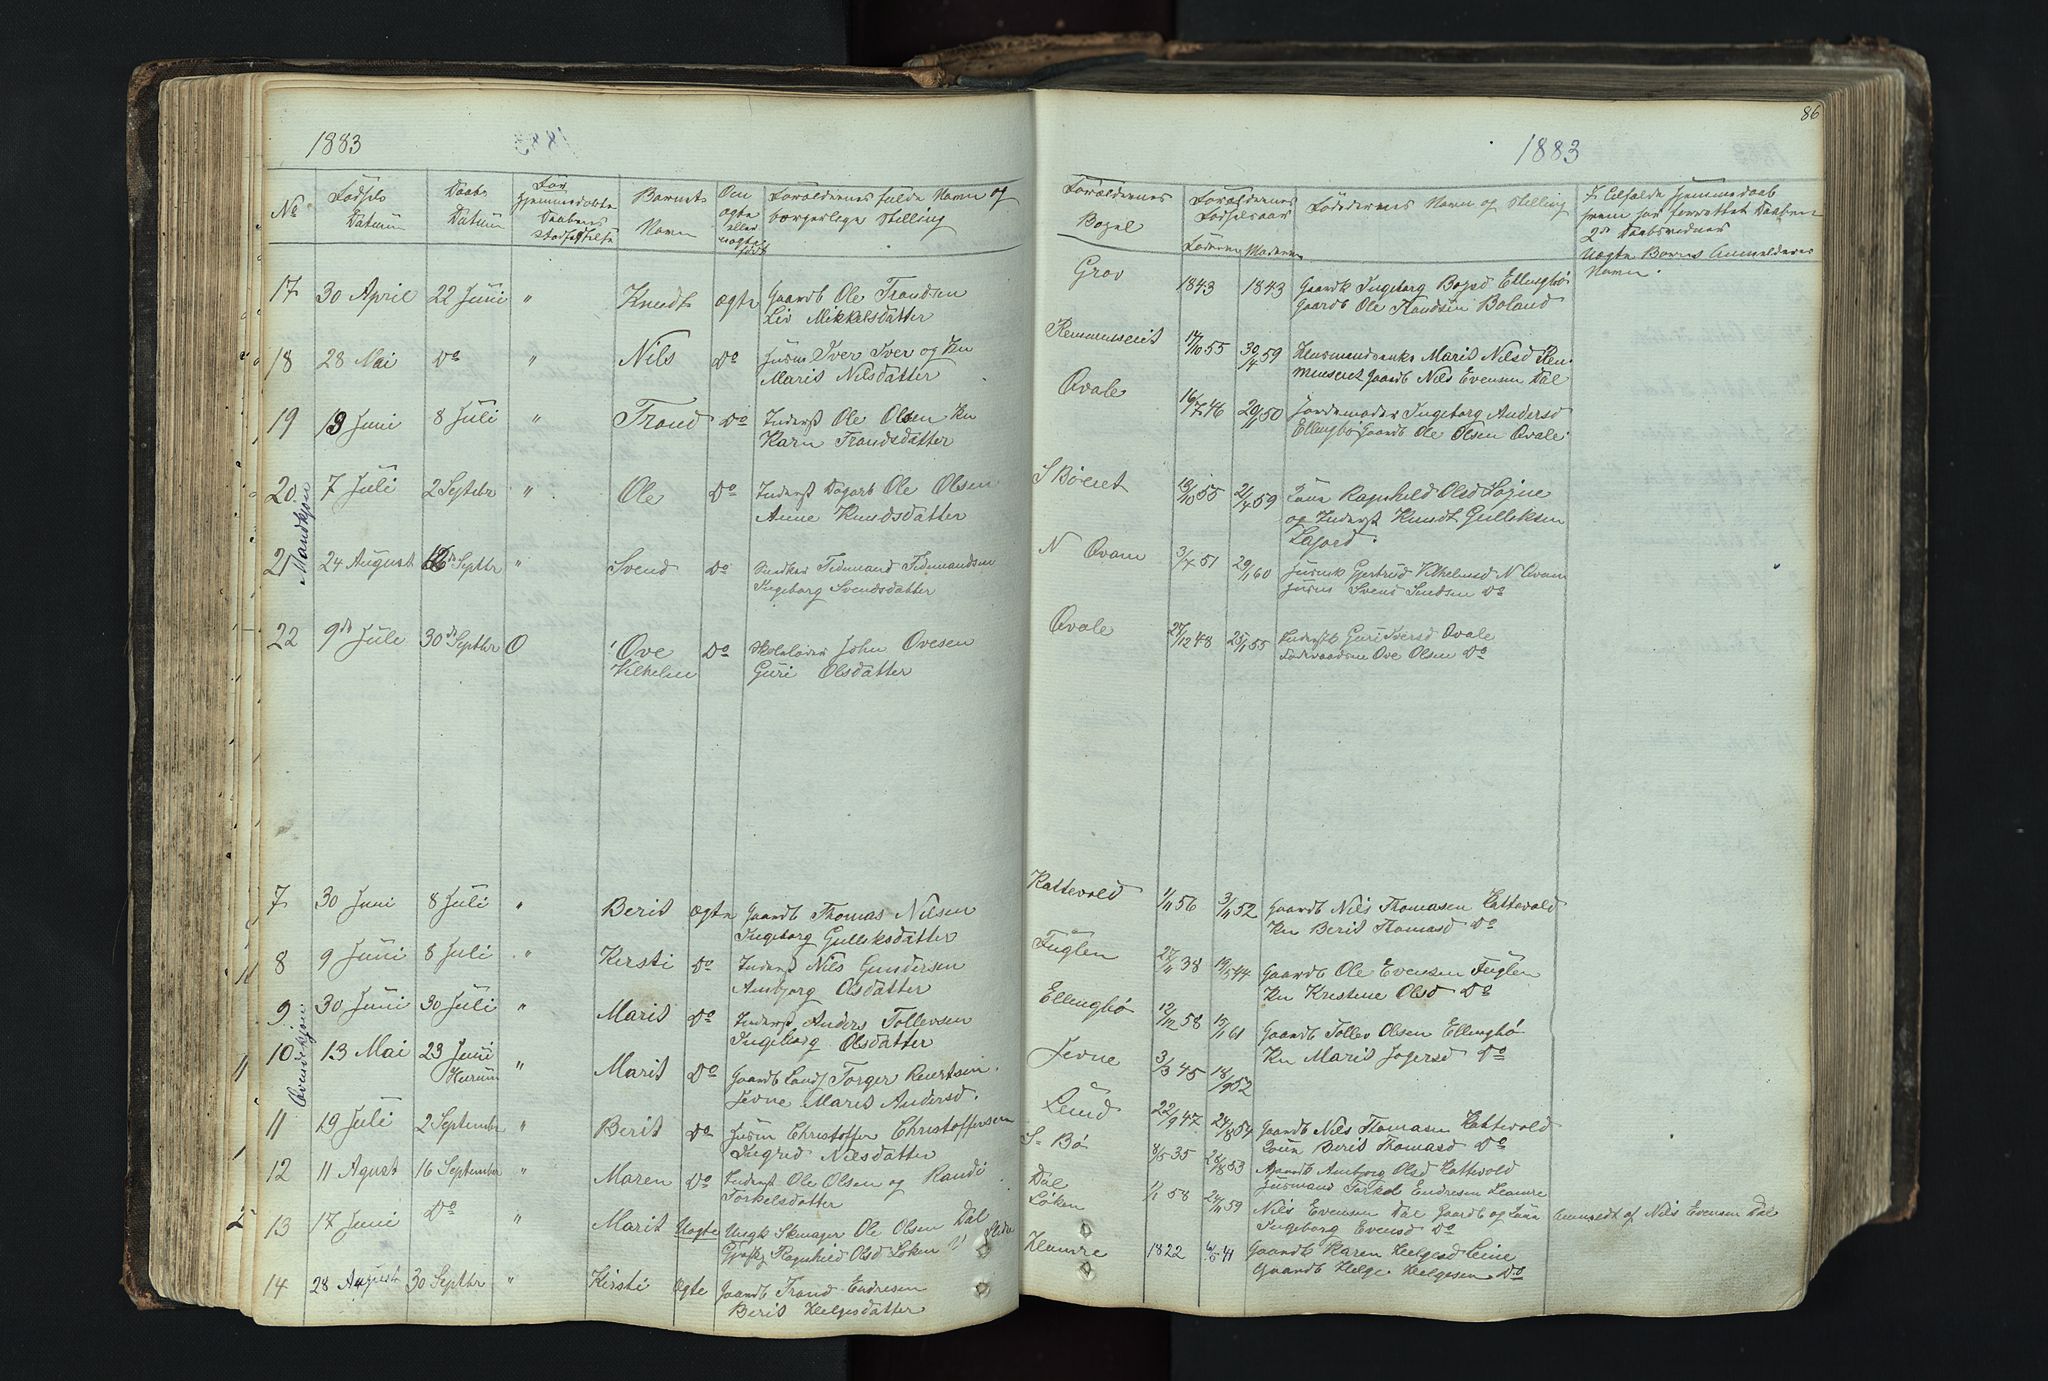 1883
№
Fødsels Datum
Daabs Datum
For hjemmedøbte Daabens Stadfæstelse
Barnets Navn
Om ægte eller uægte født
Forældrenes fulde Navn og borgerlege Stilling
17 30 April 22 Juni " Knudt ægte Gaardb Ole Trondsen
Liv Mikkelsdatter
18 28 Mai Do " Nils Do Jusm Iver Iver og Kn
Marit Nilsdatter
19 13 Juni 8 Juli " Trond Do Inderst Ole Olsen Kn
Karn Trondsdatter
20 7 Juli 2 Septbr " Ole Do Inderst Dagarb Ole Olsen
Anne Knudsdatter
Mandkjøn
21 24 August 16de Septbr " Svend Do Tidemand Tidemandsen
Ingeborg Svendsdatter
22 9de Juli 30de Septbr O Ove Do Skolelærer John Ovesen
Vilhelm Guri Olsdatter
7 30 Juni 8 Juli " Berit Ægte Gaardb Thomas Nilsen
Ingeborg Gulliksdatter
8 9 Juni 8 Juli " Kersti Do Inderst Nils Gundersen
Ambjorg Olsdatter
9 30 Juni 30 Juli " Marit Do Inderst Anders Tollevsen
Ingeborg Olsdatter
Qvindekjøn
10 13 Mai 23 Juni " Marit Do Gaardb Torger
Hurum Jevne Marit Andersd.
11 19 Juli 2 Septembr " Berit Do Jusm Christoffer Christoffersen
Ingrid Nilsdatter
12 11 Agust 16 Septembr " Maren Do Inderst Ole Olsen og Randi
Torkelsdatter
13 17 Juni Do " Marit Uægte Ungk Skmager Ole Olsen Dal
Ragnhild Olsd Løken
14 28 August 30 Septbr " Kirsti Ægte Gaardb Trond Endresen
Berit Helgesdatter
86
1883
Forældrenes Bopel
Forældrenes Fødselsaar
Faderen Moderen
Faddernes Navn og Stilling
I Tilfælde Hjemmedaab
hvem har forrettet Daaben
2de Daabsvidner
Uægte Børns Anmelderes
Navn.
Grov 1843 1843 Gaardk Ingeborg Ellingbø
Gaardb Ole Trondsen Boland
Remmeseret 17/10 55 30/4 59 Husmandsenke Marit Nilsd Rem
meseret Gaardb Nils Evensen Dal
Qvale 16/7 46 29/1 50 Jordemoder Ingeborg Andersd
Ellingbø Gaardb Ole Olsen Qvale
S Bøeret 13/10 55 21/4 59 Ragnhild Olsd Sogne
og Inderst Knudt Gulleksen
N Qvam 3/4 51 29/1 60 Jusmk Gjertrud Vilhelmsd N Qvam
Do
Qvale 27/12 48 25/1 55 Inderstk Guri Iversd Qvale
Ove Olsen Do
Kattevold 1/11 56 3/11 52 Gaardb Nils Thomasen Kattevold
Kn Berit Thomasd Do
Fuglen 27/11 38 19/5 44 Gaardb Ole Evensen Fuglen
Kn Kristene Olsd Do
Ellingbø 12/12 58 15/1 61 Gaardb Tollev Olsen Ellingbø
Kn Marit Do
Jevne 3/3 45 18/9 52
Lund 22/9 47 24/8 54 Gaardb Nils Thomasen Kattevold
Berit Thomasd Do
S Bø 8/5 35 28/8 53 Ambjorg Olsd Kattevold
Jusmand Torkel Endresen Hamre
Dal 1/1 58 24/11 59 Nils Evensen Dal Gaardb og Anmeldt af Nils Evensen Dal
Løken Ingeborg Evensd Do
Hamre 1822 6/5 41 Gaardk Karen Helgesd Leine
Gaardb Helge Helgesen Do